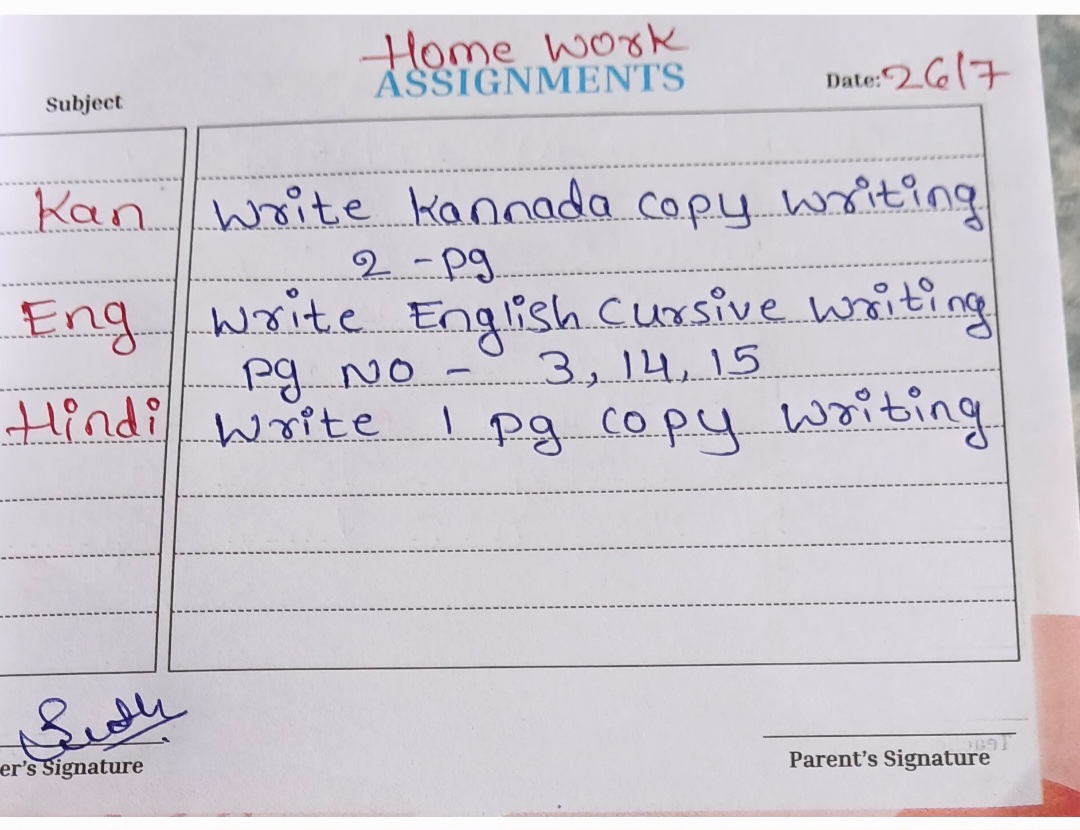 Home Work
ASSIGNMENTS
Date: 26/7
Subject
Kan Write Kannada copy writing
2 - pg
Eng Write English Cursive writing
pg No - 3, 14, 15
Hindi Write 1 pg copy writing
er's Signature
Parent's Signature